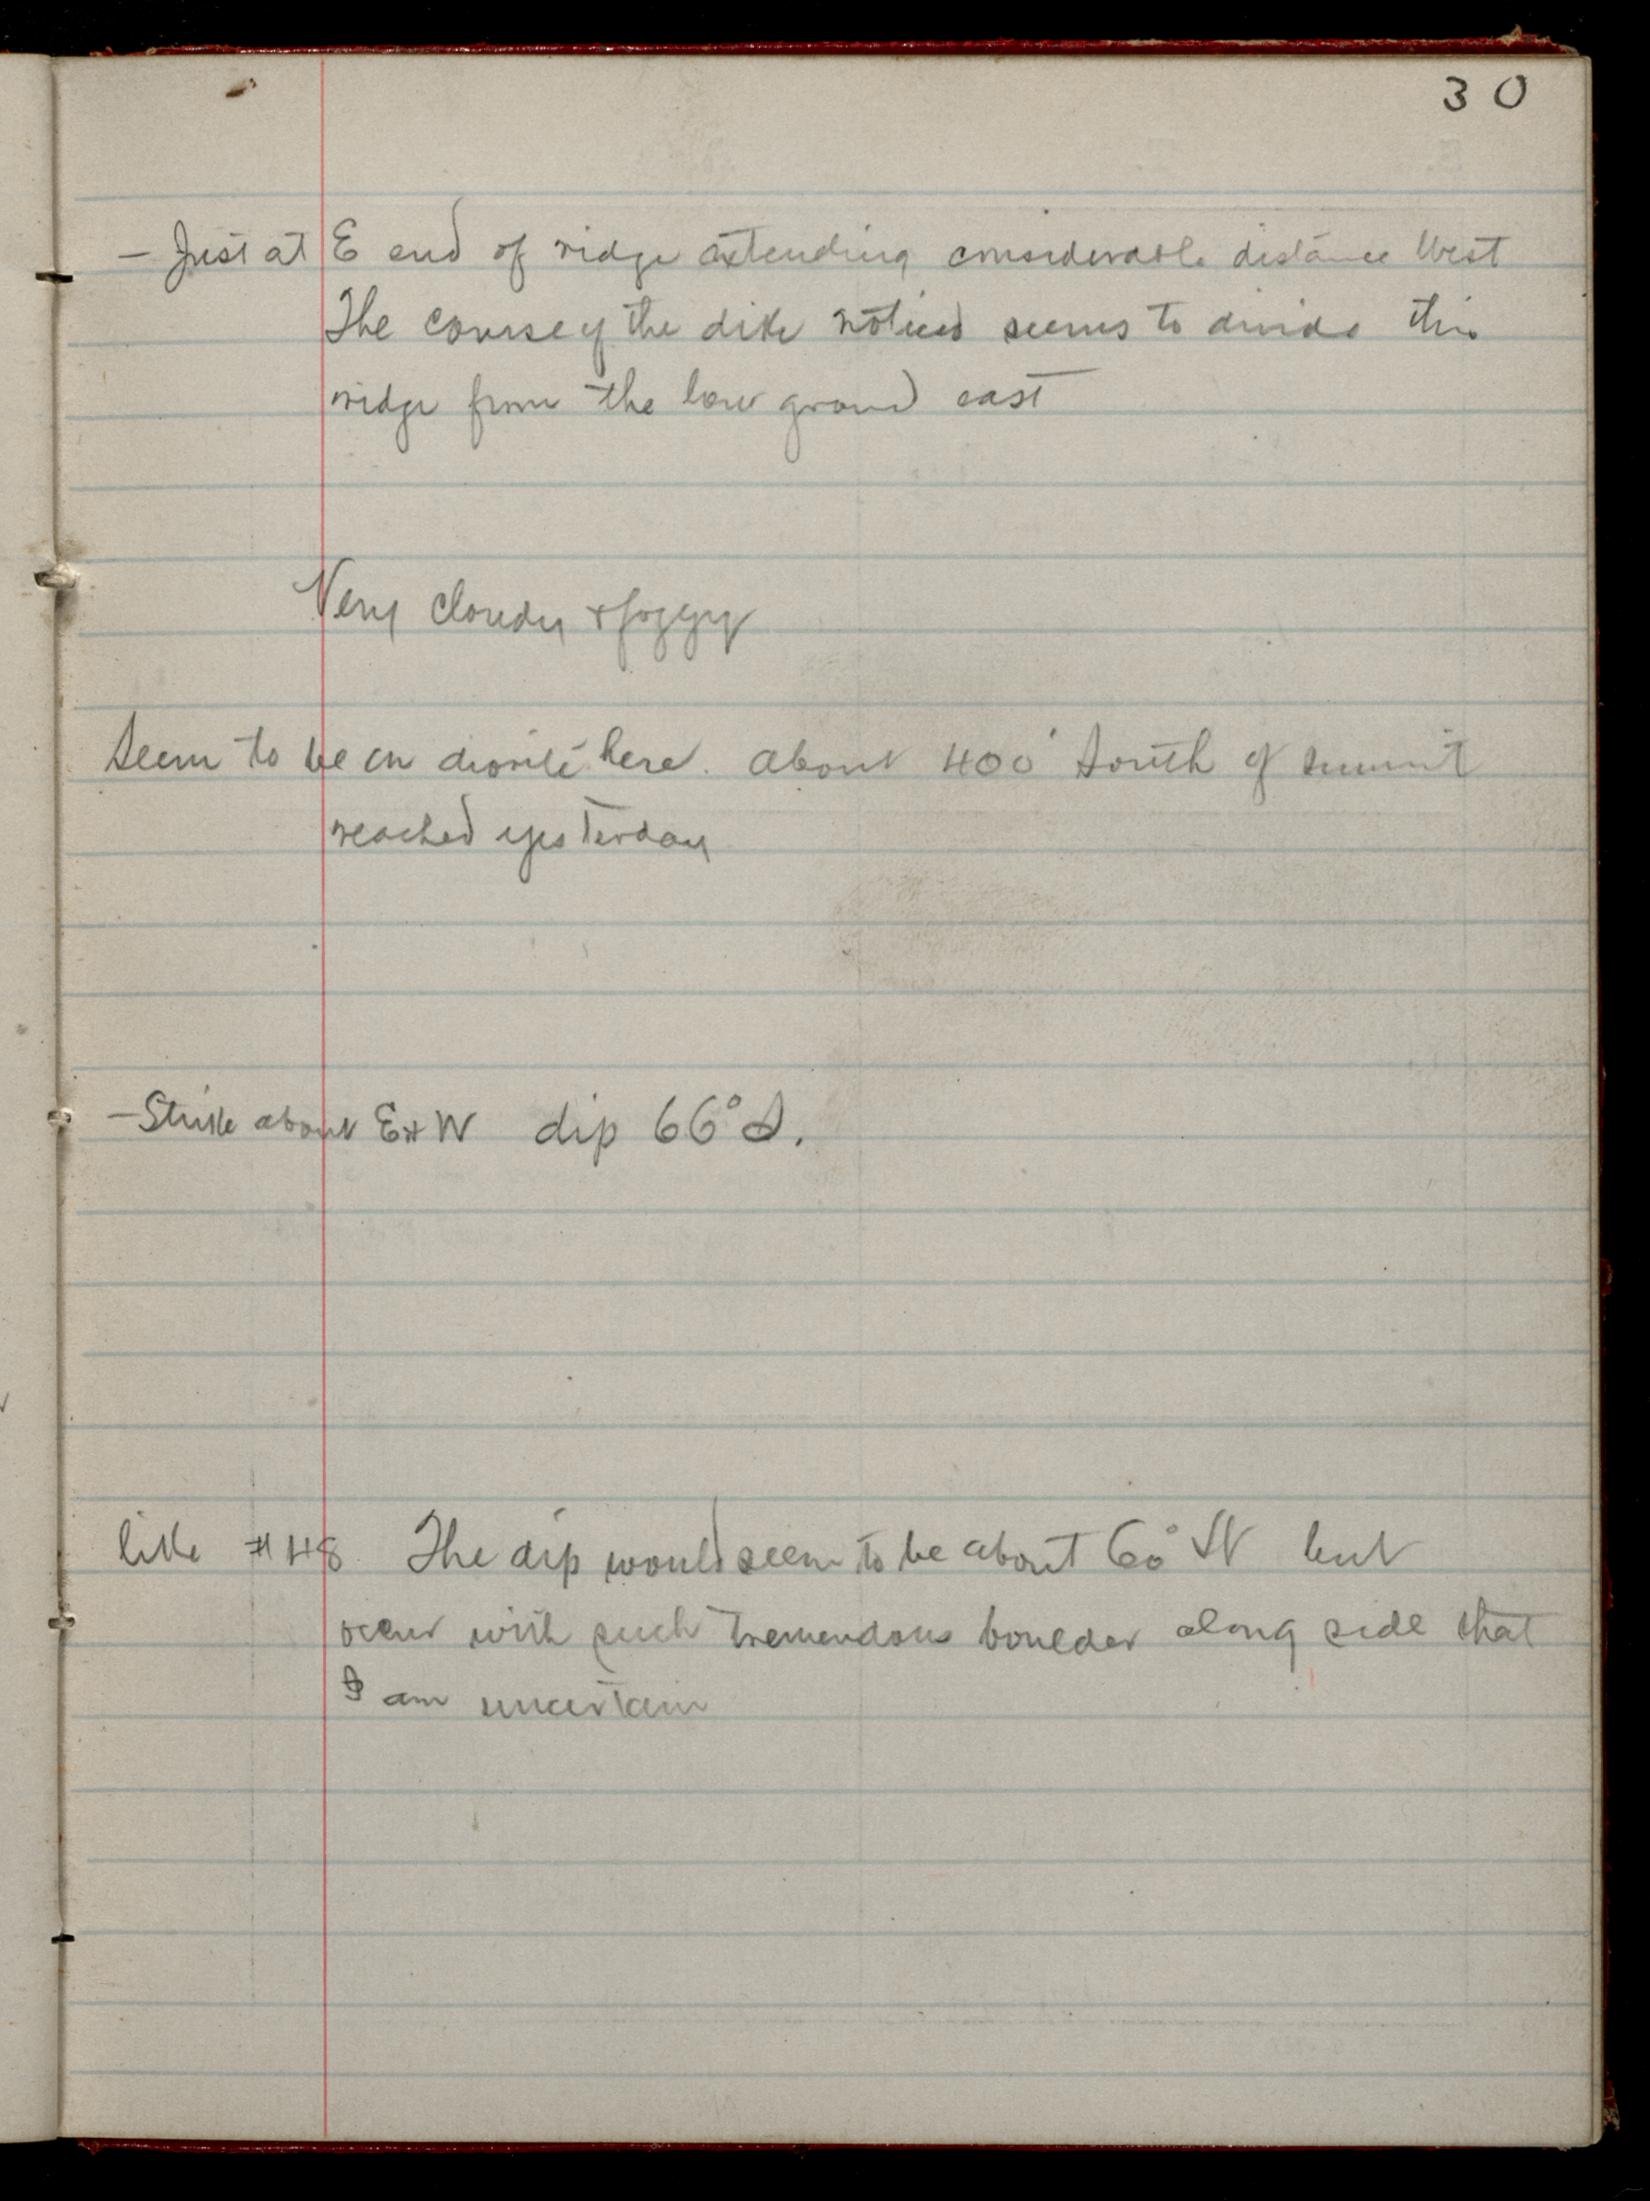 30
- Just at E end of ridge extending considerable distance West
The course of the dike noticed seems to divide this
ridge from the low ground east
Very cloudy + foggy
Seem to be on diorite here. About 400' South of summit
reached yesterday
- Strike about E + W dip 66° S.
like # 48 The dip would seem to be about 60° N but
occur with such tremendous boulder along side that
I am uncertain